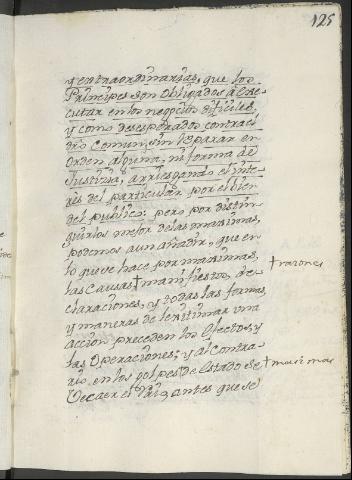 125
y extraordinarias, que los
Principes son obligados á exe-
cutar en los negocios dificiles,
y como desesperados contra el
dro comun, sin reparar en
orden alguna, ni forma de
Justicia, arriesgando el inte-
rès del particular por el bien
del publico: pero por distin-
guirlos mejor de las maximas,
podemos aun añadir, que en
lo que se hace por maximas,
las Causas † manifiestos, de-
† razones
claraciones, y todas las formas,
y maneras de lexitimar una
accion preceden los efectos, y
las Operaciones; y al Contra-
rio, en los golpes de Estado se † mas
Vecaer el antes que se